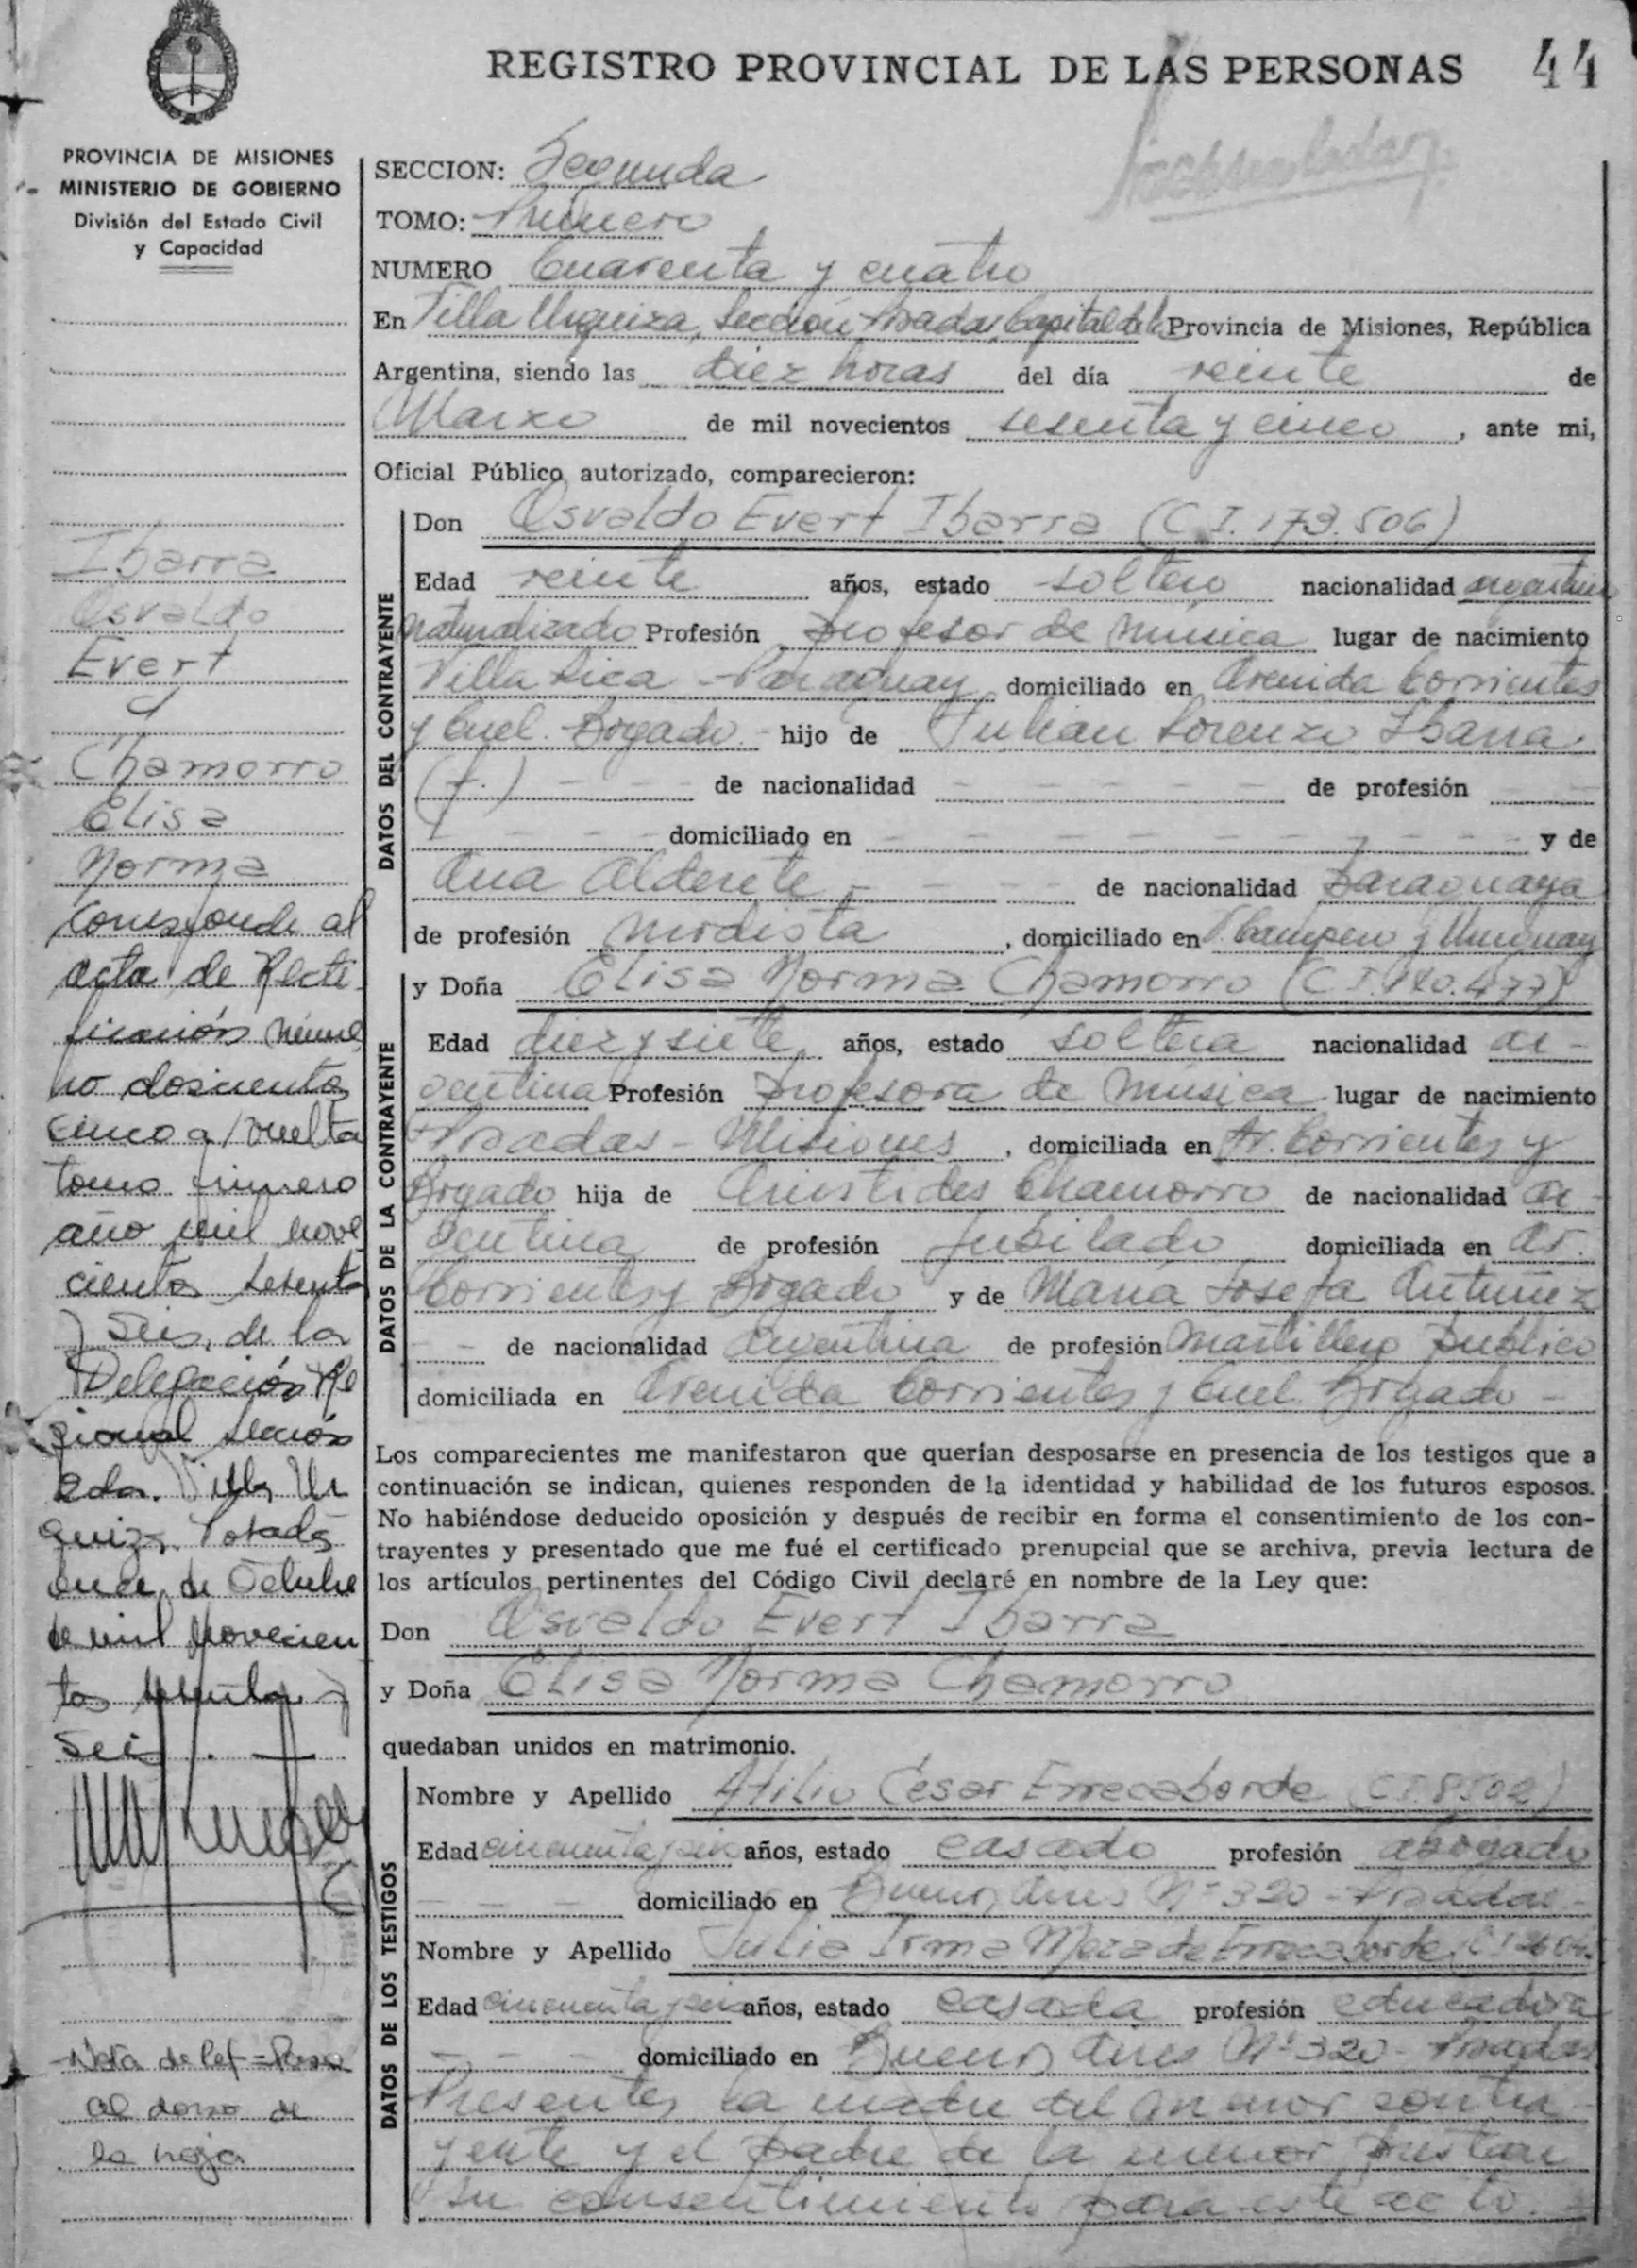 REGISTRO PROVINCIAL DE LAS PERSONAS 44
PROVINCIA DE MISIONES
MINISTERIO DE GOBIERNO
División del Estado Civil
y Capacidad
SECCION: Segunda
TOMO: Primero
NUMERO Cuarenta y cuatro
En Villa Urquiza, Sección Posadas, Capital de la Provincia de Misiones, República
Argentina, siendo las diez horas del día veinte de
Marzo de mil novecientos sesenta y cinco, ante mi,
Oficial Público autorizado, comparecieron:
Ibarra
Osvaldo
Evert
y
Chamorro
Elisa
Norma
Corresponde al
acta de Recti-
ficación núme
ro doscientos
cinco a/vuelta
tomo primero
año mil nove
cientos setenta
y Seis, de la
Delegación Re
gional Sección
2da. Villa Ur
quiza. Posadas
once de Octubre
de mil novecien
tos setenta y
Seis. —
Nota de Ref = Pasa
al dorso de
la hoja
DATOS DEL CONTRAYENTE
Don Osvaldo Evert Ibarra (C.I. 173.506)
Edad veinte años, estado soltero nacionalidad argentino
naturalizado Profesión profesor de música lugar de nacimiento
Villa Rica - Paraguay domiciliado en Avenida Corrientes
y Cnel. Bogado - hijo de Julian Lorenzo Ibarra
(f.) - - - de nacionalidad - - - - - de profesión -
- - - - domiciliado en - - - - - - - - y de
Ana Alderete - - - - de nacionalidad paraguaya
de profesión modista, domiciliado en Campero y Uruguay
DATOS DE LA CONTRAYENTE
y Doña Elisa Norma Chamorro (C.I. 180.477)
Edad diez y siete años, estado soltera nacionalidad ar-
gentina Profesión profesora de música lugar de nacimiento
Posadas - Misiones, domiciliada en Av. Corrientes y
Bogado hija de Aristides Chamorro de nacionalidad ar-
gentina de profesión Jubilado domiciliada en Av.
Corrientes y Bogado y de María Josefa Antunez
- - de nacionalidad argentina de profesión Martillero público
domiciliada en Avenida Corrientes y Cnel. Bogado -
Los comparecientes me manifestaron que querían desposarse en presencia de los testigos que a
continuación se indican, quienes responden de la identidad y habilidad de los futuros esposos.
No habiéndose deducido oposición y después de recibir en forma el consentimiento de los con-
trayentes y presentado que me fué el certificado prenupcial que se archiva, previa lectura de
los artículos pertinentes del Código Civil declaré en nombre de la Ley que:
Don Osvaldo Evert Ibarra
y Doña Elisa Norma Chamorro
quedaban unidos en matrimonio.
DATOS DE LOS TESTIGOS
Nombre y Apellido Atilio Cesar Errecaborde (C.I. 8502)
Edad cincuenta y seis años, estado casado profesión abogado
- - - domiciliado en Buenos Aires Nº 320 - Posadas
Nombre y Apellido Julia Irma Meza de Errecaborde
Edad cincuenta y seis años, estado casada profesión educadora
- - - domiciliado en Buenos Aires Nº 320 - Posadas
Presentes la madre del menor contra-
yente y el padre de la menor prestan
su consentimiento para este acto.